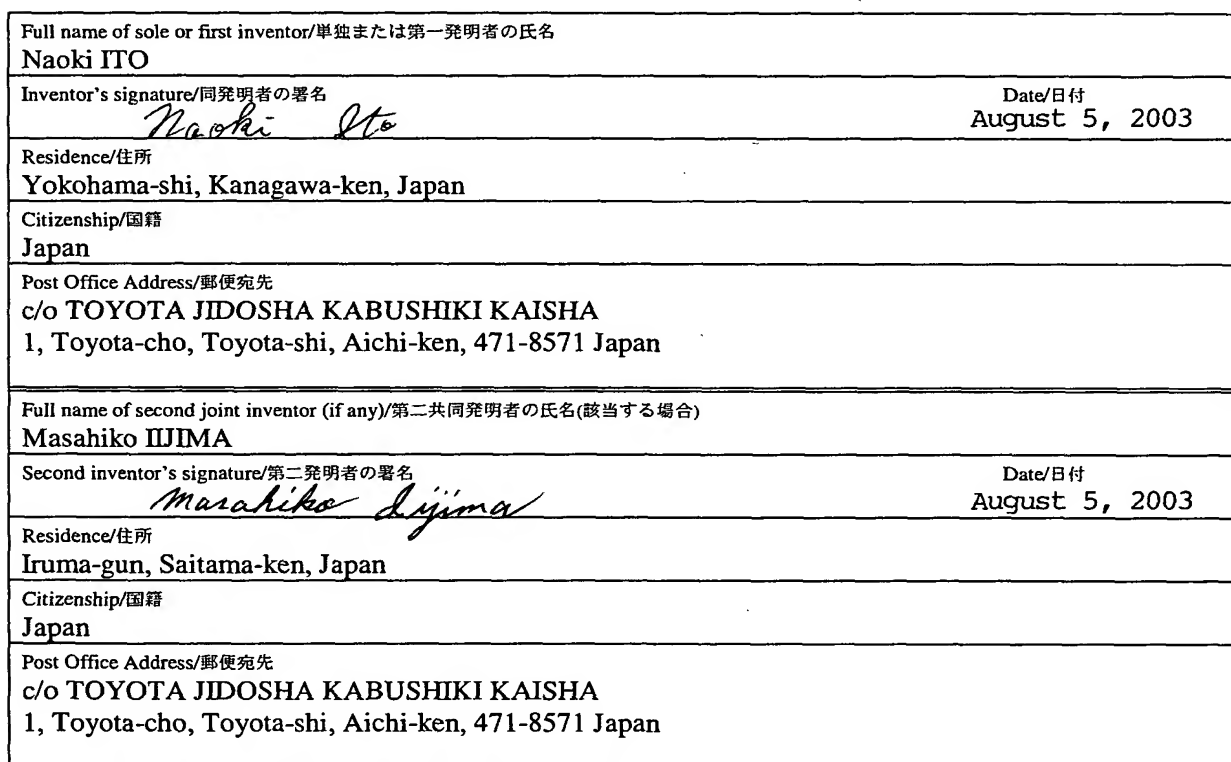 Full name of sole or first inventor/単独または第一発明者の氏名
Naoki ITO
Inventor's signature/同発明者の署名 Date/日付
Naoki Ito August 5, 2003
Residence/住所
Yokohama-shi, Kanagawa-ken, Japan
Citizenship/国籍
Japan
Post Office Address/郵便宛先
c/o TOYOTA JIDOSHA KABUSHIKI KAISHA
1, Toyota-cho, Toyota-shi, Aichi-ken, 471-8571 Japan
Full name of second joint inventor (if any)/第二共同発明者の氏名(該当する場合)
Masahiko IIJIMA
Second inventor's signature/第二発明者の署名 Date/日付
Masahiko Iijima August 5, 2003
Residence/住所
Iruma-gun, Saitama-ken, Japan
Citizenship/国籍
Japan
Post Office Address/郵便宛先
c/o TOYOTA JIDOSHA KABUSHIKI KAISHA
1, Toyota-cho, Toyota-shi, Aichi-ken, 471-8571 Japan